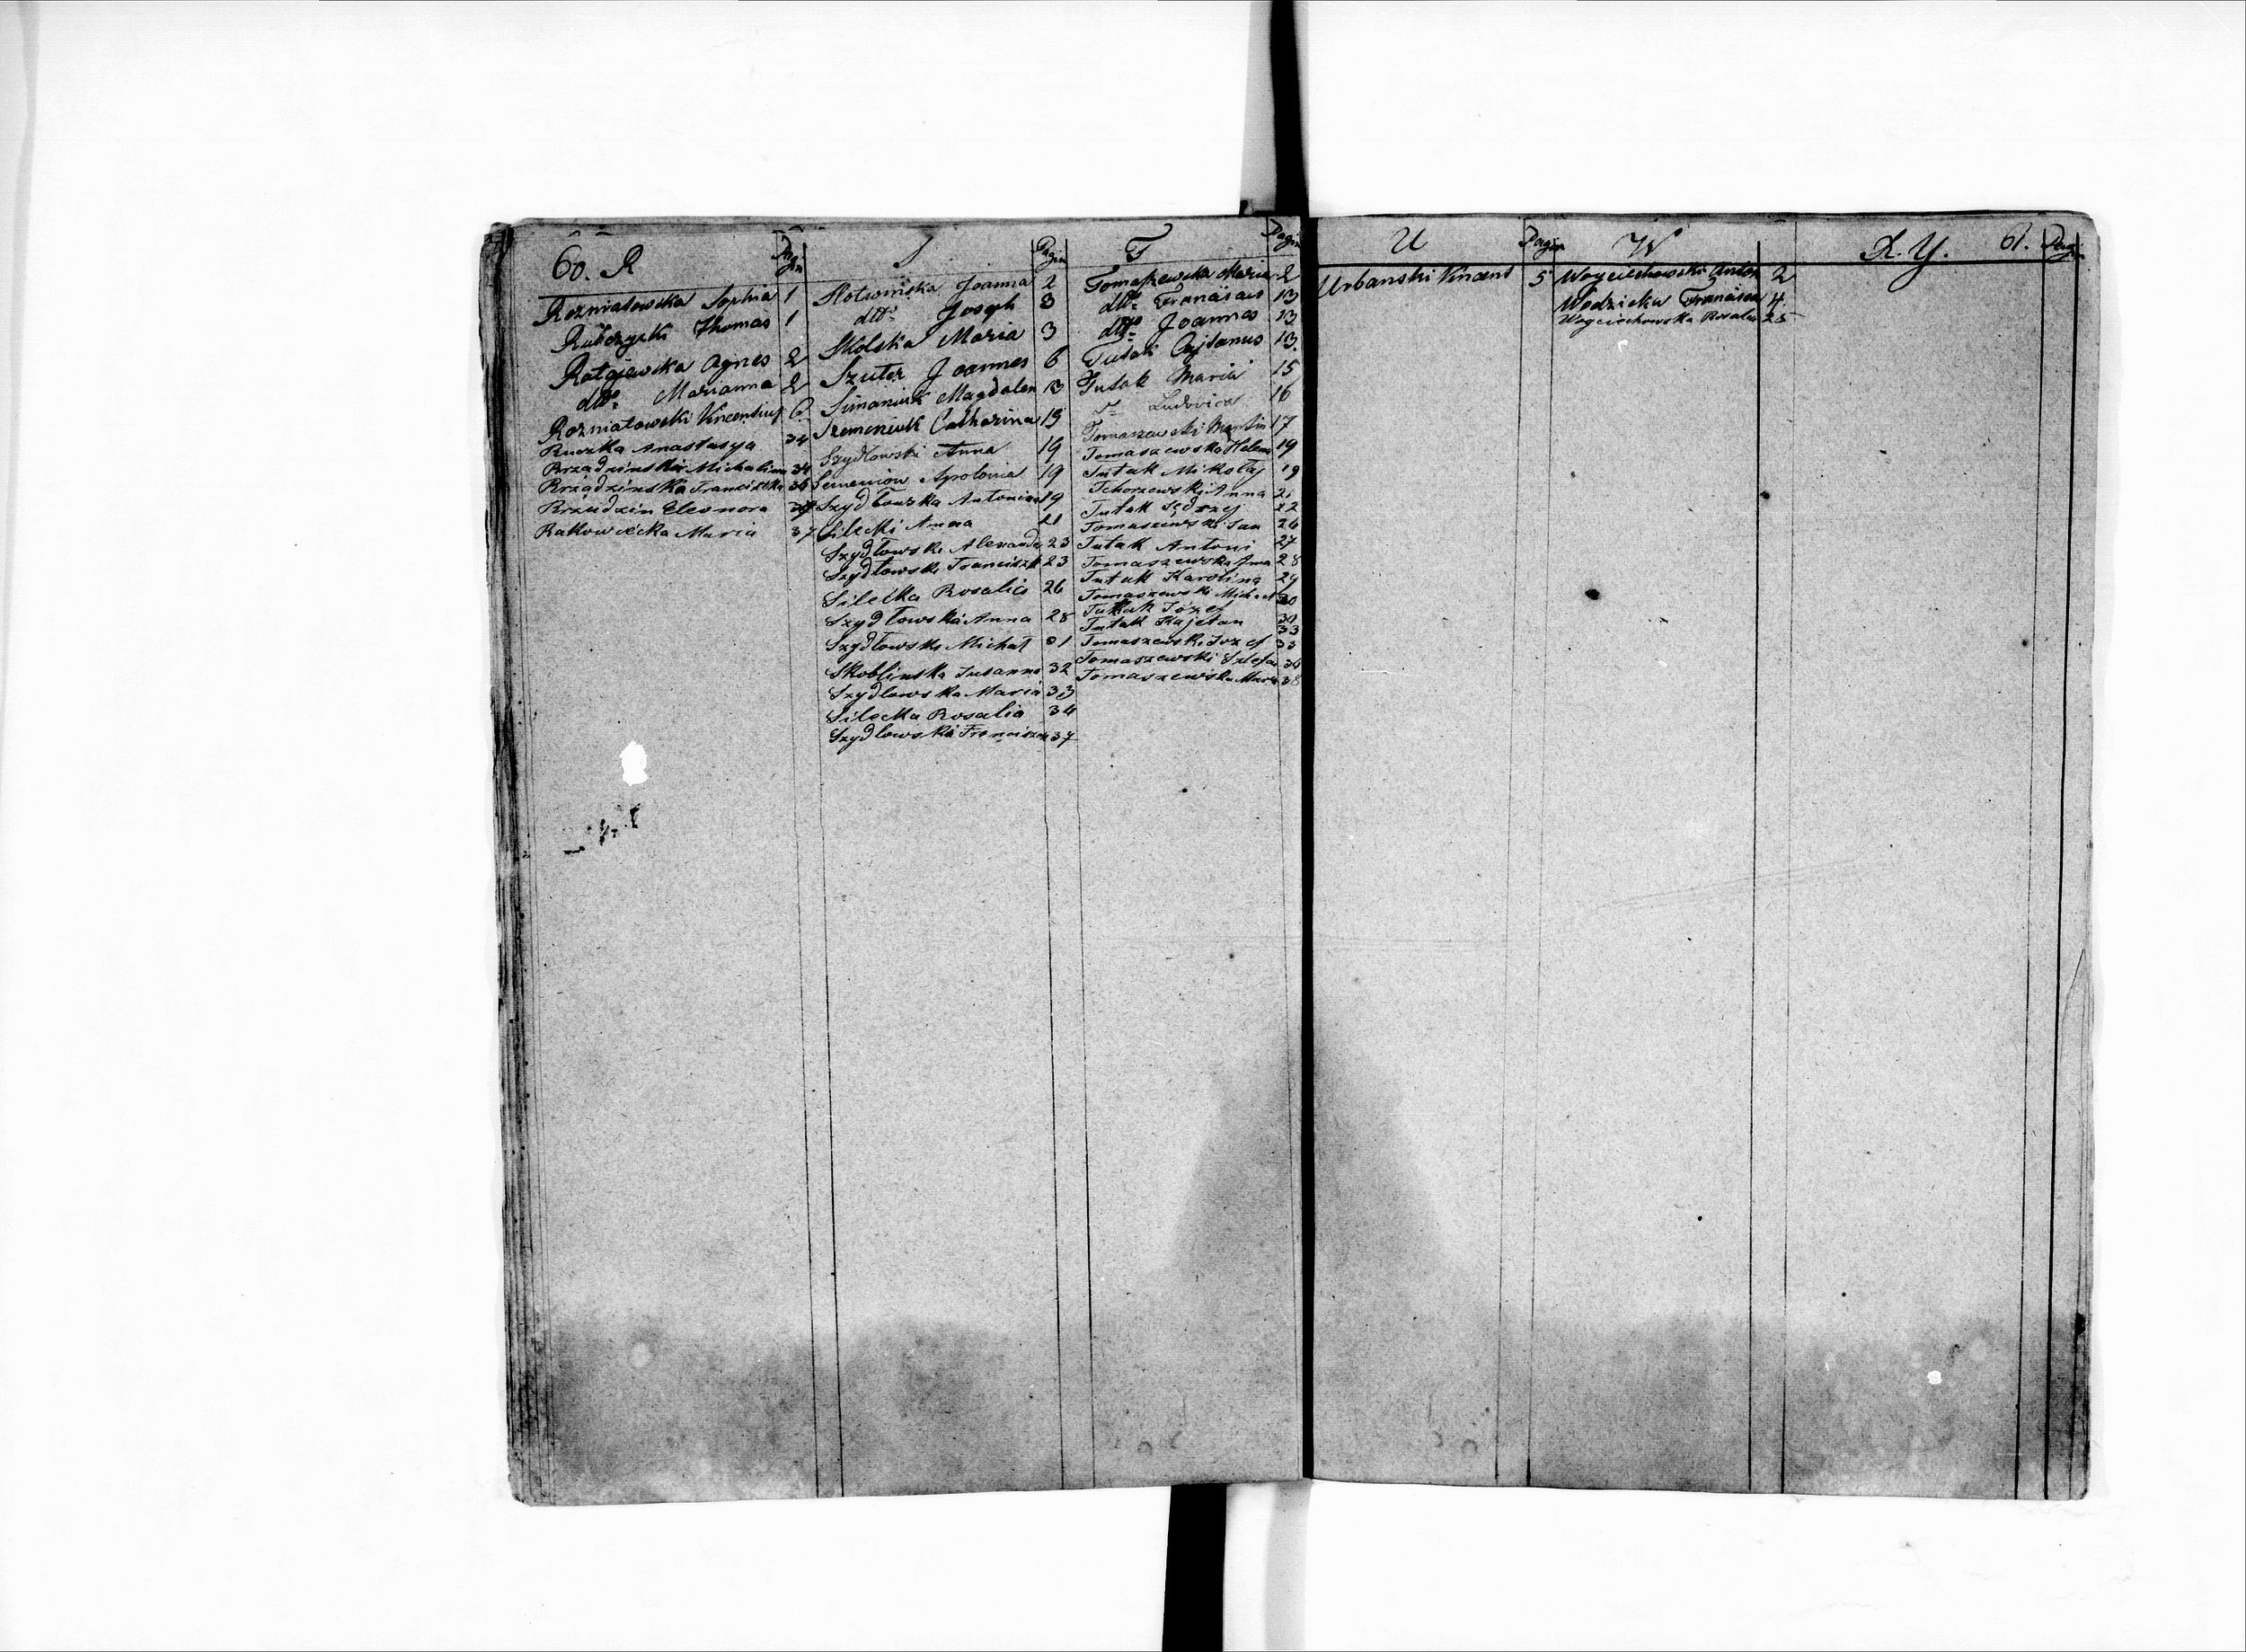 60. R
Pagin
Rozniatowska Sophia 1
Rubczycki Thomas 1
Ratajewska Agnes 2
dtto Marianna 2
Rozniatowski Vincentius 6
Ruczka Anastasya 34
Brządzinska Michalina 34
Brządzinska Franciszka 36
Brzudzin Eleonora
Rakowiecka Maria 37
S
Pagin
Slotwińska Joanna 2
dtto Joseph 3
Skolska Maria 3
Szuter Joannes 6
Simaniuk Magdalen 13
Szemeniuk Catharina 15
Szydłowski Anna 19
Semeniow Apolonia 19
Szydłowska Antonina 19
Silecki Anna 21
Szydłowski Alexander 23
Szydłowski Franciszk 23
Silecka Rosalia 26
Szydłowska Anna 28
Szydłowski Michał 31
Skoblinska Susanna 32
Szydlowska Maria 33
Silecka Rosalia 34
Szydlowski Franciszek 37
T
Pagin
Tomaszewska Maria 2
dtto Franciscus 13
dtto Joannes 13
Tutak Cajtanus 13.
Tutak Maria 15
T= Ludovica 16
Tomaszewski Martin 17
Tomaszewska Helena 19
Tutak Mikołaj 19
Tchorzewski Anna 21
Tutak Jędrzej 22
Tomaszewski Jan 26
Tutak Antoni 27
Tomaszewska Anna 28
Tutak Karolina 29
Tomaszewski Michael 30
Tutak Józef
Tutak Kajetan 33
Tomaszewski Jozef 33
Tomaszewski Stefan 34
Tomaszewska Maria 38
U
Pagin
Urbanski Vincent 5
W
Woyciechowski Anton 2
Wodzicka Francisca 4.
Woyciechowska Rosalia 25
X. Y.
61.
Pagi